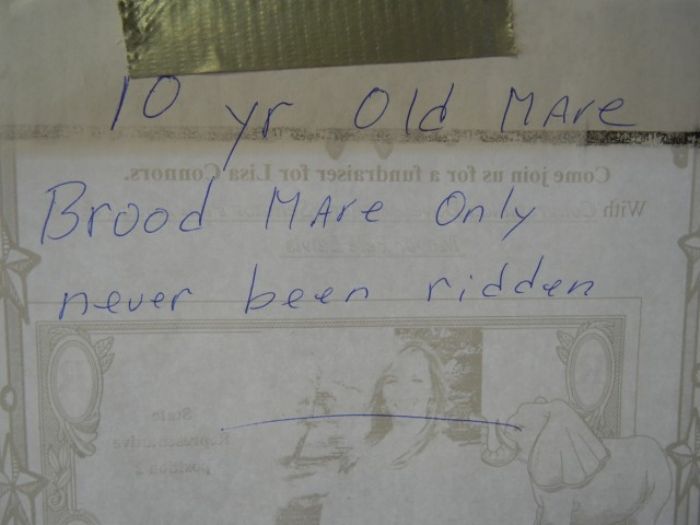 10 yr Old MAre
Come join us for a fundraiser for Lisa Connors.
Brood MAre Only
With
never been ridden
State
Representative
position 2